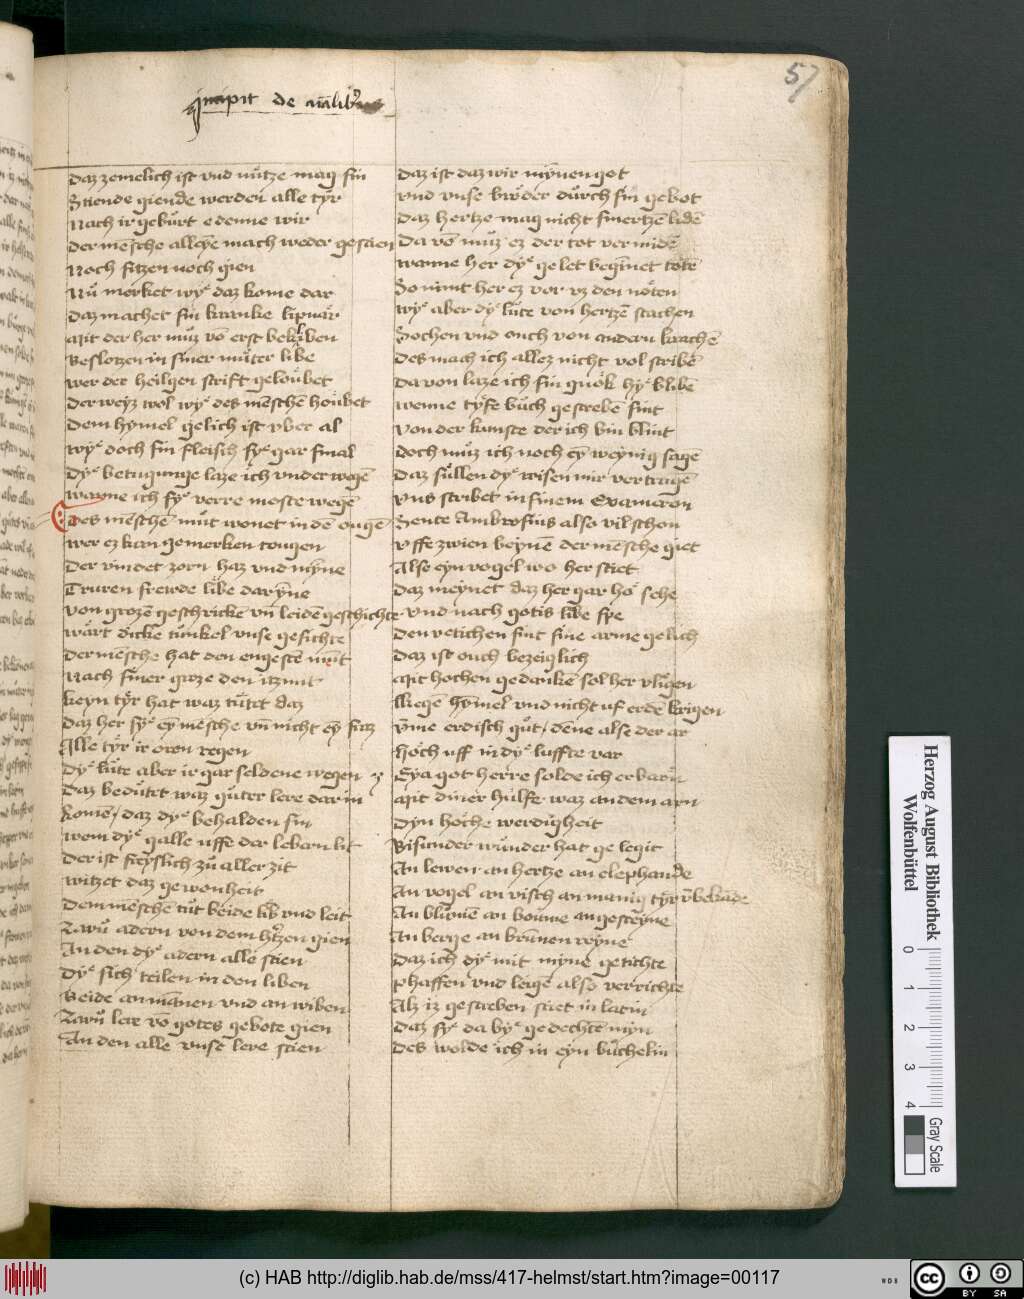 Incipit de
57
daz zemelich ist vnd nütze mag sin
Stiende giende werden alle tyr
Nach ir gebürt e denne wir
der mēsche alleyne mach weder gestien
Noch sitzen noch gien
Nů merket wy daz kome dar
daz machet sin kranke lipnar
Mit der her můz vō erst bekliben
Beslotzen in siner můter libe
wer der heilgen scrift geloubet
der weyz wol wy des mēschē houbet
dem hymel gelich ist vber al
wy doch sin fleisch sy gar smal
dy betugunge laze ich vnder wegē
wanne ich sy verre moste wegē
des mēschē můt wonet in dē ougē
wer ez kan gemerken tougen
der vindet zorn haz vnd myne
Truren freude libe darynne
von grozē geschrickē vn̄ leidē geschichte
wart dicke tunkel vnse gesichte
der mēsche hat den engestē munt
Nach siner groze den itzunt
keyn tyr hat waz tutet daz
daz her sy eyn mēsche vn̄ nicht ey fraz
Alle tyr ir oren regen
dy lute aber ir gar seldene wegen
daz bedutet waz guter lere dar in
komē, daz dy behalden sin
wem dy galle uffe der lebern lit
der ist freyslich zů aller zit
witzet daz gewonheit
dem mēschē tůt beide lib vnd leit
Zwu adern von dem hertzen gien
An den dy adern alle stien
dy sich teilen in den liben
Beide an mannen vnd an wiben
Zwu lere vō gotes gebote gien
An den alle vnse lere stien
daz ist daz wir mynen got
vnd vnse bruder durch sin gebot
daz hertze mag nicht smertzē lidē
da vō můz ez der tot vermidē
wanne her dy gelet begīnet totē
So nimt her ez vor vz den nöten
wy aber dy lute von hertzē stachen
Sochen vnd ouch von andern krachē
des mach ich allez nicht vol scribē
da von laze ich sin quok hy blibē
wenne tyfe buch gescrebē sint
von der kunste der ich bin blint
doch můz ich noch ey weynig sagē
daz sullen dy wisen mir vertragē
vns scribet in sinem Exameron
Sente Ambrosius also vil schon
vffe zwien beynē der mēsche giet
Alse eyn vogel wo her stiet
daz meynet daz her gar ho sehe
vnd nach gotis libe spe
den vetichen sint sine arme gelich
daz ist ouch bezeiglich
Mit hochen gedankē sol her vligen
kliegē hymel vnd nicht uf erdē krigen
vme erdisch gut, dēne alse der ar
hoch uff in dy luffte var
Eya got herre solde ich erbarn
Mit diner hulfe waz an dem arn
dyn hoche werdigheit
Bisunder wunder hat gelegit
An lewen an hertze an elephande
An vogel an visch an manig tyr vnbekāde
An blumē an boume an gesteyne
An berge an brunnen reyne
daz ich dy mit myne getichte
phaffen vnd leigē also verrichte
Alz iz gescreben stiet in latin
daz sy da by gedechtē myn
des wolde ich in eyn buchelin
Herzog August Bibliothek
Wolfenbüttel
0 1 2 3 4
Gray Scale
(c) HAB http://diglib.hab.de/mss/417-helmst/start.htm?image=00117
WDB
cc BY SA